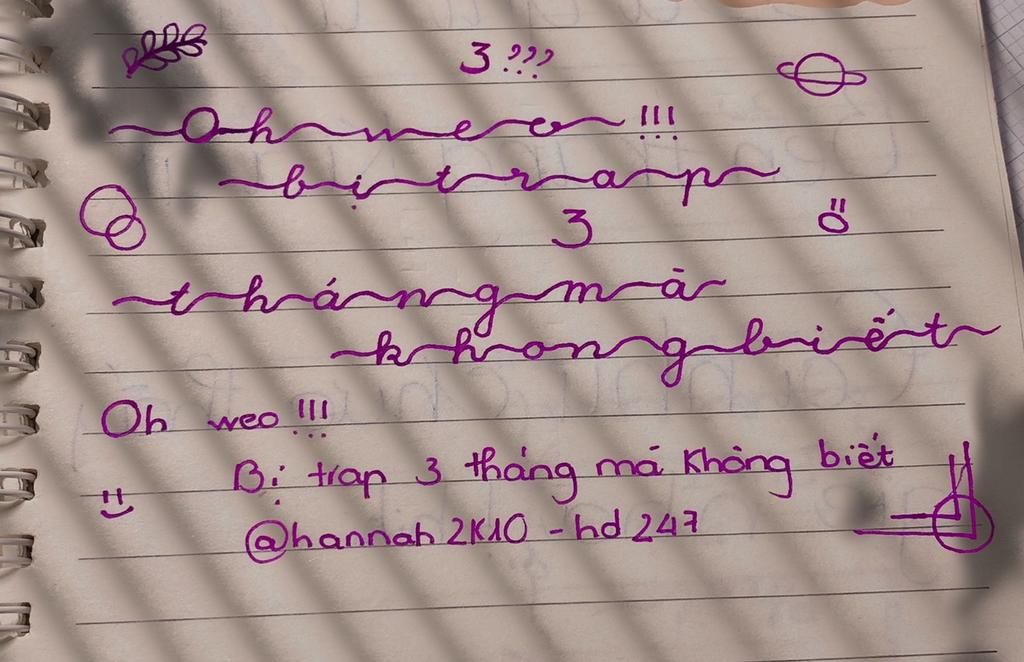 3 ???
Oh meo !!!
bị trap
3
tháng mà
không biết
Oh weo !!!
Bị trap 3 tháng mà Không biết
@hannah2K10 - hd 247